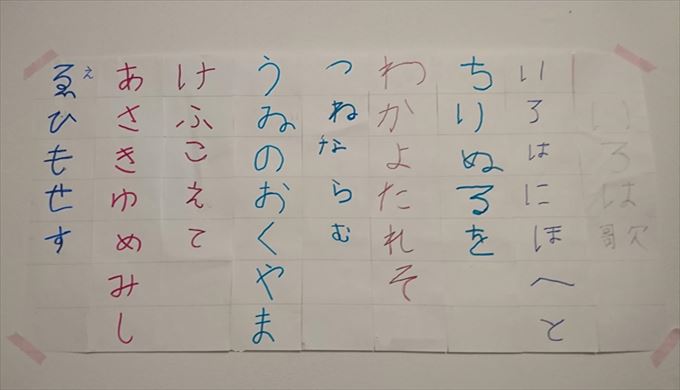 いろは歌
いろはにほへと
ちりぬるを
わかよたれそ
つねならむ
うゐのおくやま
けふこえて
あさきゆめみし
え
ゑひもせす